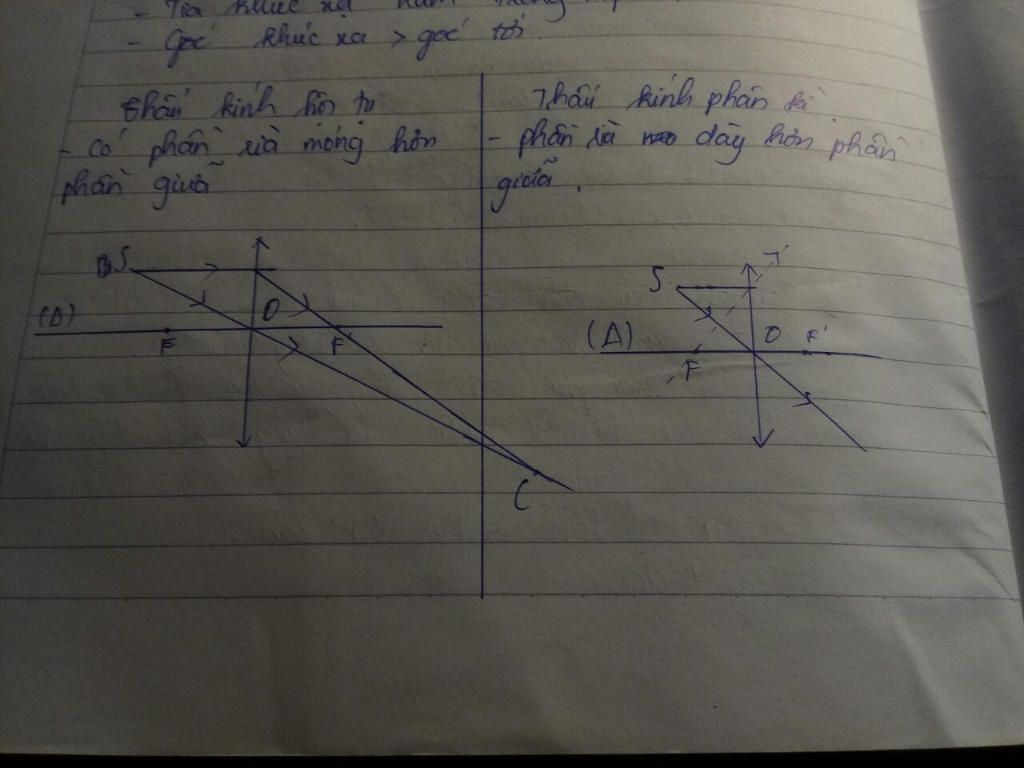 - Tia khúc xạ nằm trong
- Góc khúc xạ > góc tới.
Thấu kính hội tụ
- có phần rìa mỏng hơn
phần giữa
Thấu kính phân kì
- phần rìa dày hơn phần
giữa.
S
(Δ)
O
F
F
C
S
(Δ)
O
F
F'